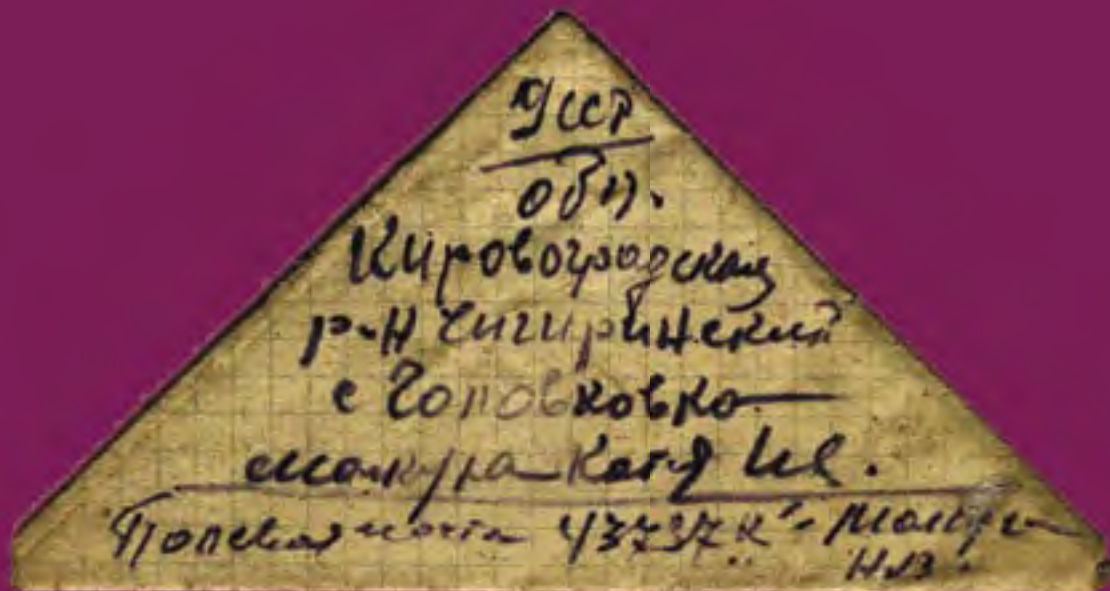 УССР
обл.
Кировоградская
р-н Чигиринский
с Головковка
Катя Ив.
Полевая почта 43737 К